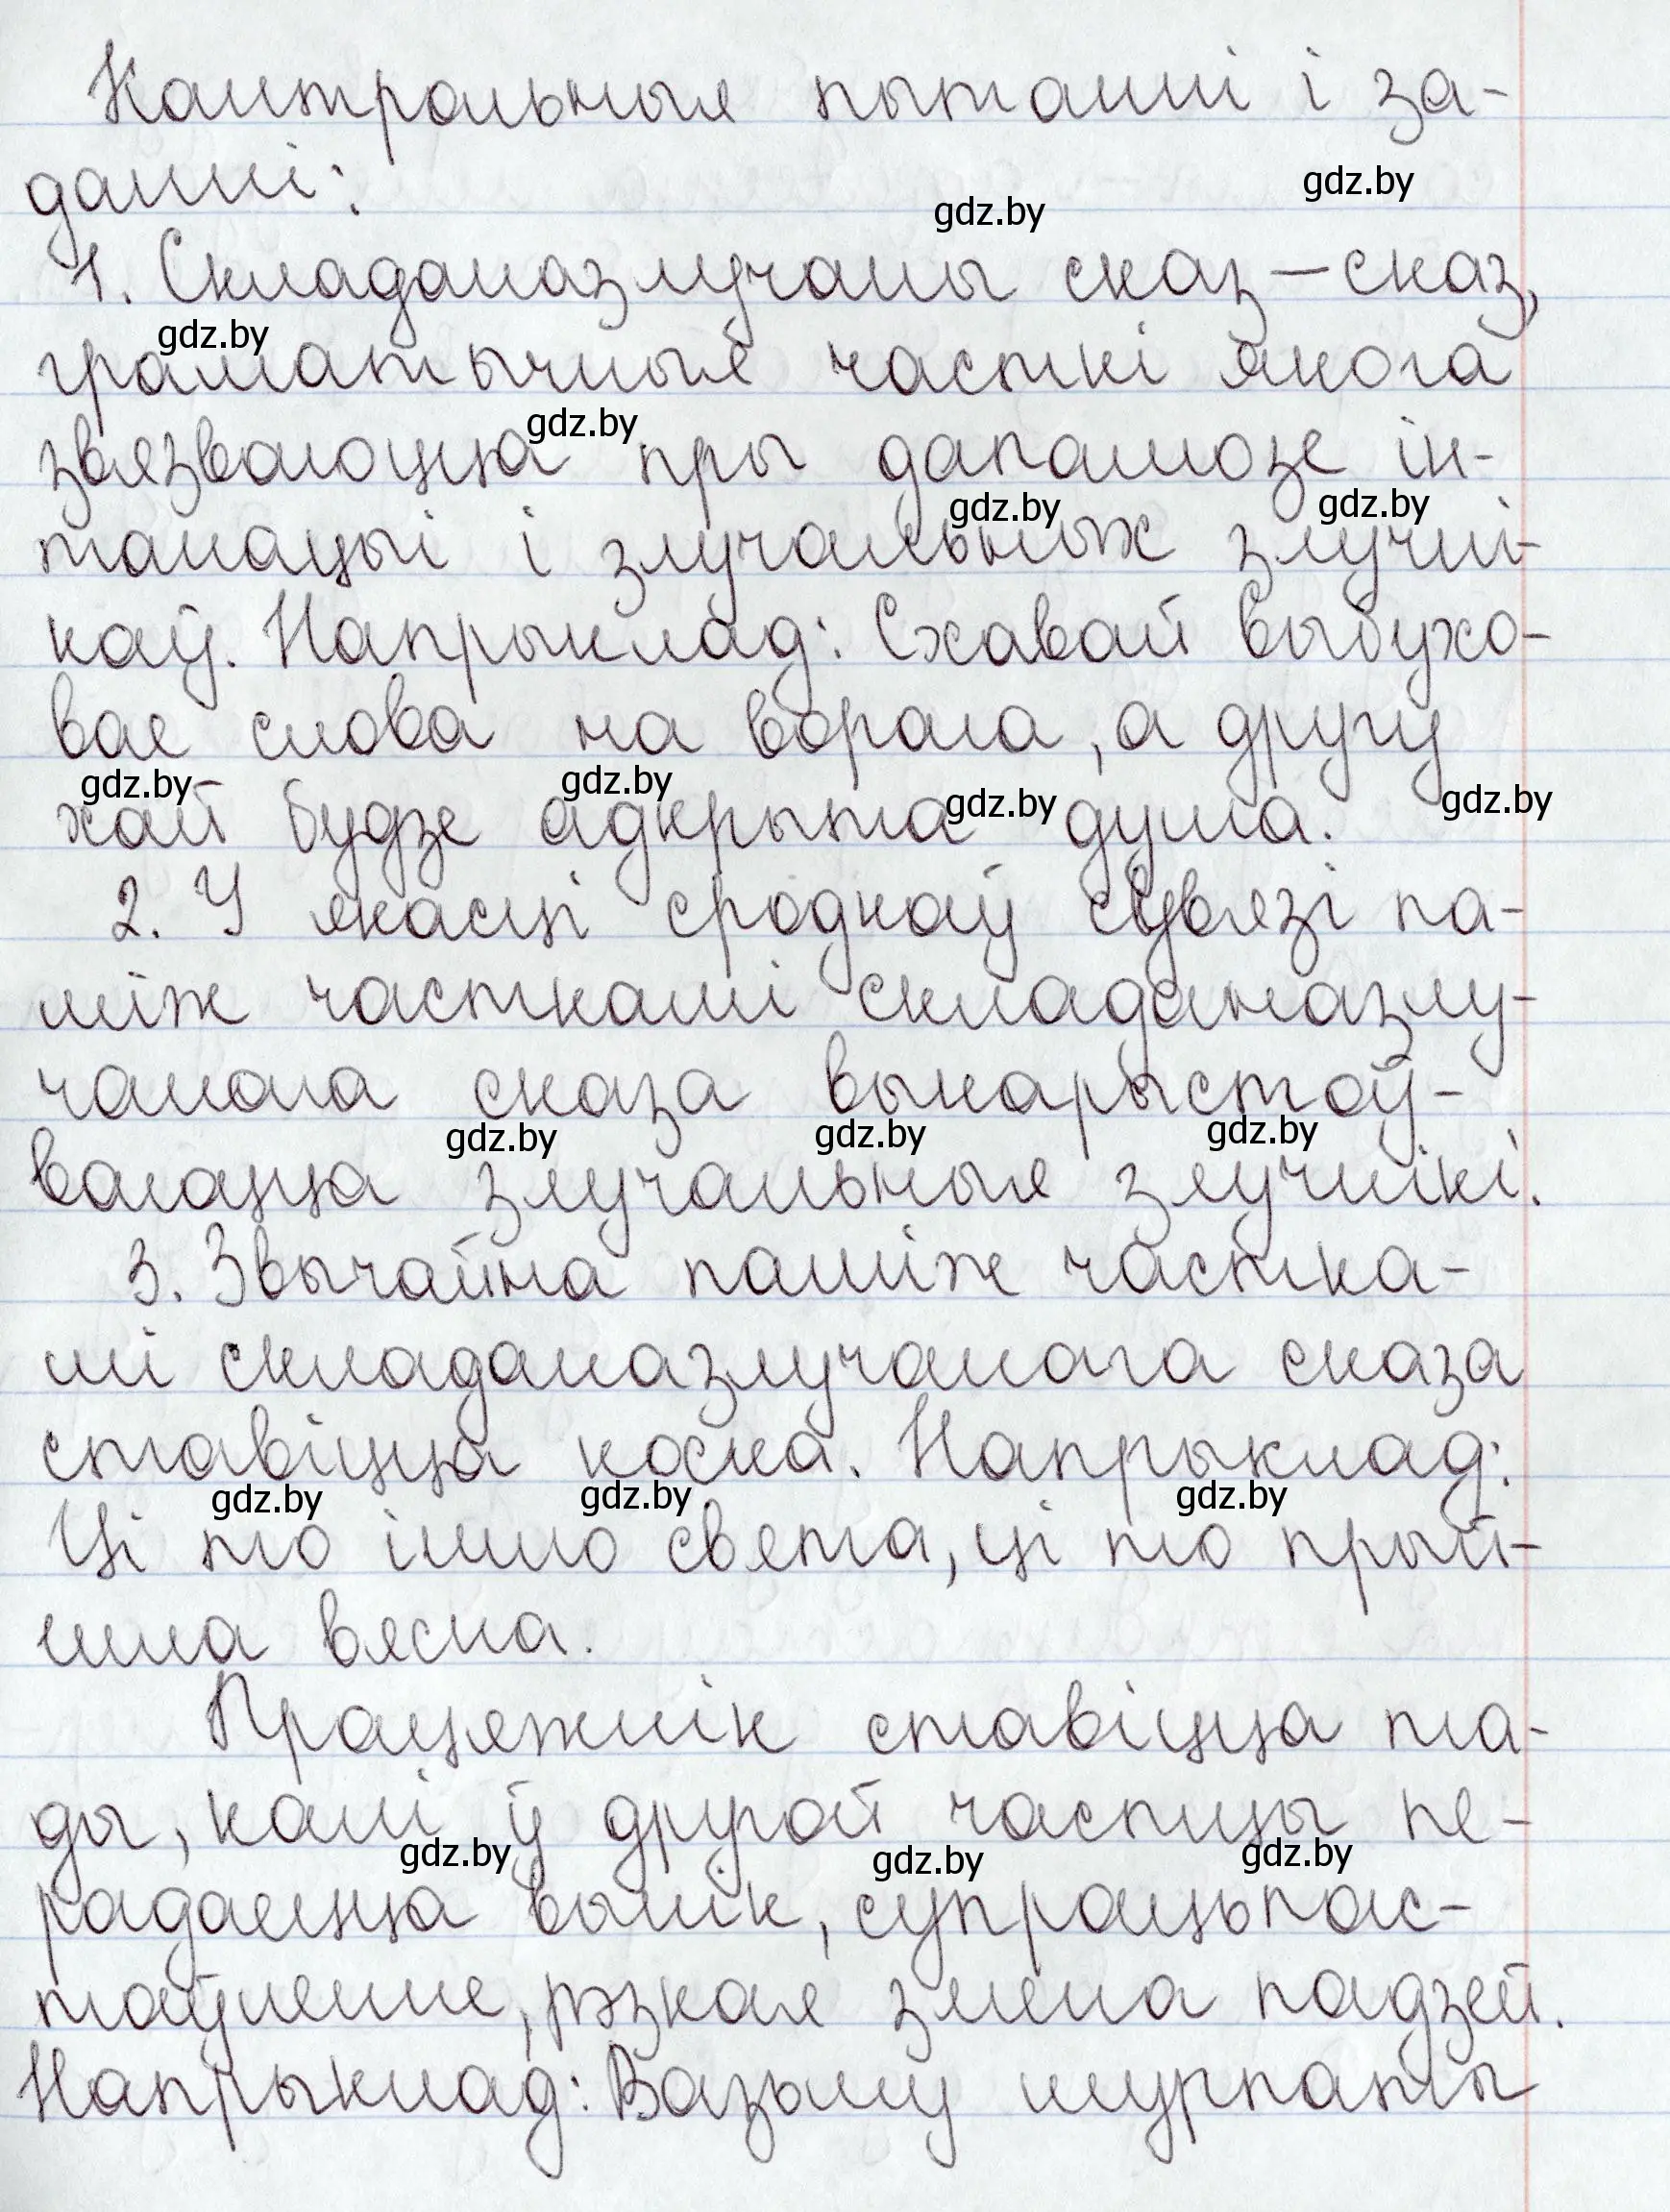 Кантрольныя пытанні і за-
данні:
gdz.by gdz.by
1. Складаназлучаны сказ – сказ,
gdz.by
граматычныя часткі якога
gdz.by
звязваюцца пры дапамозе ін-
gdz.by gdz.by
танацыі і злучальных злучні-
каў. Напрыклад: Схавай выбухо-
вае слова на ворага, а другу
gdz.by gdz.by gdz.by gdz.by
хай будзе адкрыта душа.
2. У якасці сродкаў сувязі па-
між часткамі складаназлу-
чанага сказа выкарыстоў-
gdz.by gdz.by gdz.by
ваюцца злучальныя злучнікі.
3. Звычайна паміж частка-
мі складаназлучанага сказа
ставіцца коска. Напрыклад:
gdz.by gdz.by gdz.by
Ці то ішло свята, ці то прый-
шла вясна.
Працяжнік ставіцца та-
ды, калі ў другой частцы пе-
gdz.by gdz.by gdz.by
радаецца вынік, супрацьпас-
таўленне, рэзкая змена падзей.
Напрыклад: Вазьму шурпаты